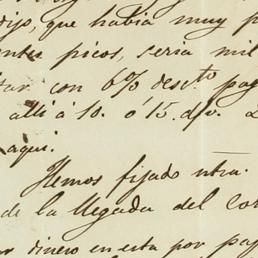 dijo, que habia muy p
picos, seria mil
tar con 6% desc.to pag
alli á 10. ó 15. d/v.
aqui.
Hemos fijado ntra.
de la llegada del Cor
dinero en esta por pag